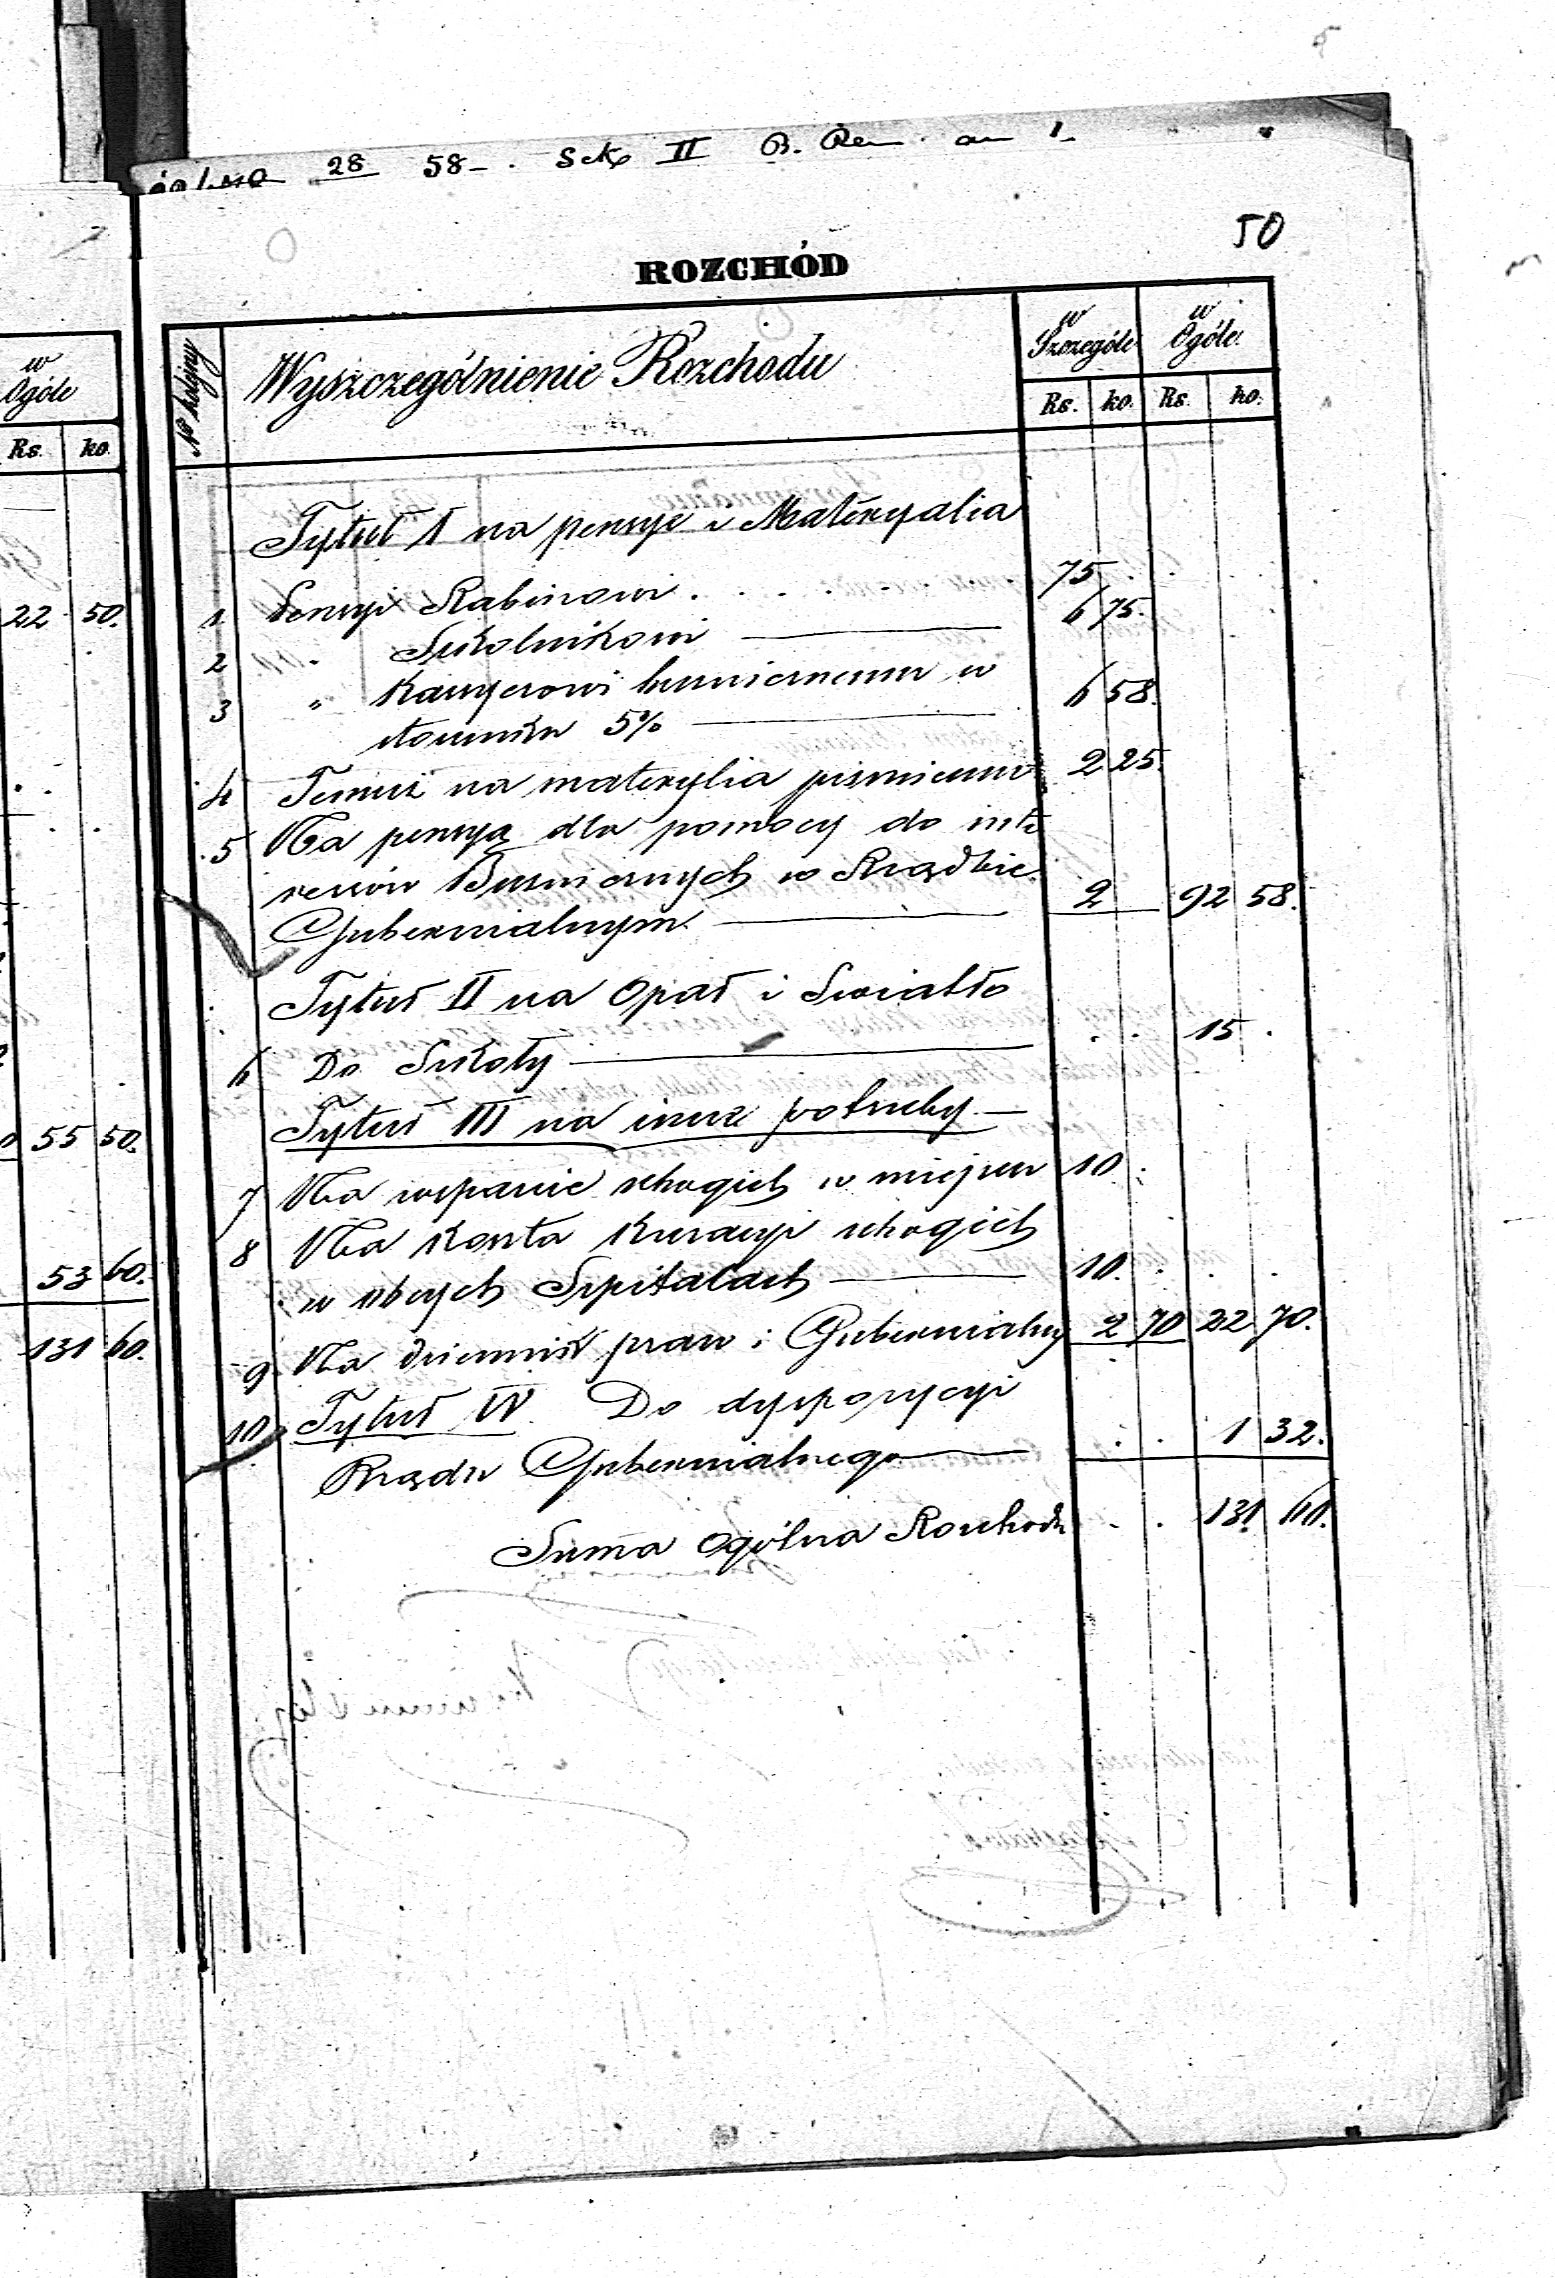 28 58 II
50
ROZCHÓD
w Ogóle
Rs. ko.
No kolejny
Wyszczególnienie Rozchodu
w Szczególe
w Ogóle
Rs. ko. Rs. ko.
Tytuł I na pensye i Materyalia
22 50.
1 Pensyi Rabinowi . . . . . 75
2 " Szkolnikowi 6 75.
3 " Kassyerowi bużnicznemu w
stosunku 5% 6 58.
4 Temuż na materylia piśmienne 2 25.
5 Na pensyą dla pomocy do inte
ressów Bużnicznych w Rządzie
Gubernialnym 2 92 58.
Tytuł II na Opał i Swiatło
6 Do Szkoły 15.
Tytuł III na inne potrzeby
55 50.
7 Na wsparcie ubogich w miejscu 10
8 Na koszta kuracyi ubogich
w obcych Szpitalach 10.
53 60.
9 Na dziennik praw i Gubernialny 2 70 22 70.
131 60.
10 Tytuł IV Do dyspozycyi
Rządu Gubernialnego 1 32.
Suma Ogólna Rozchodu 131 60.